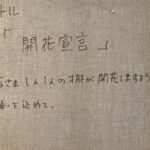 トル
「開花宣言」
さま1人1人の才能が開花しますよう
を込めて。